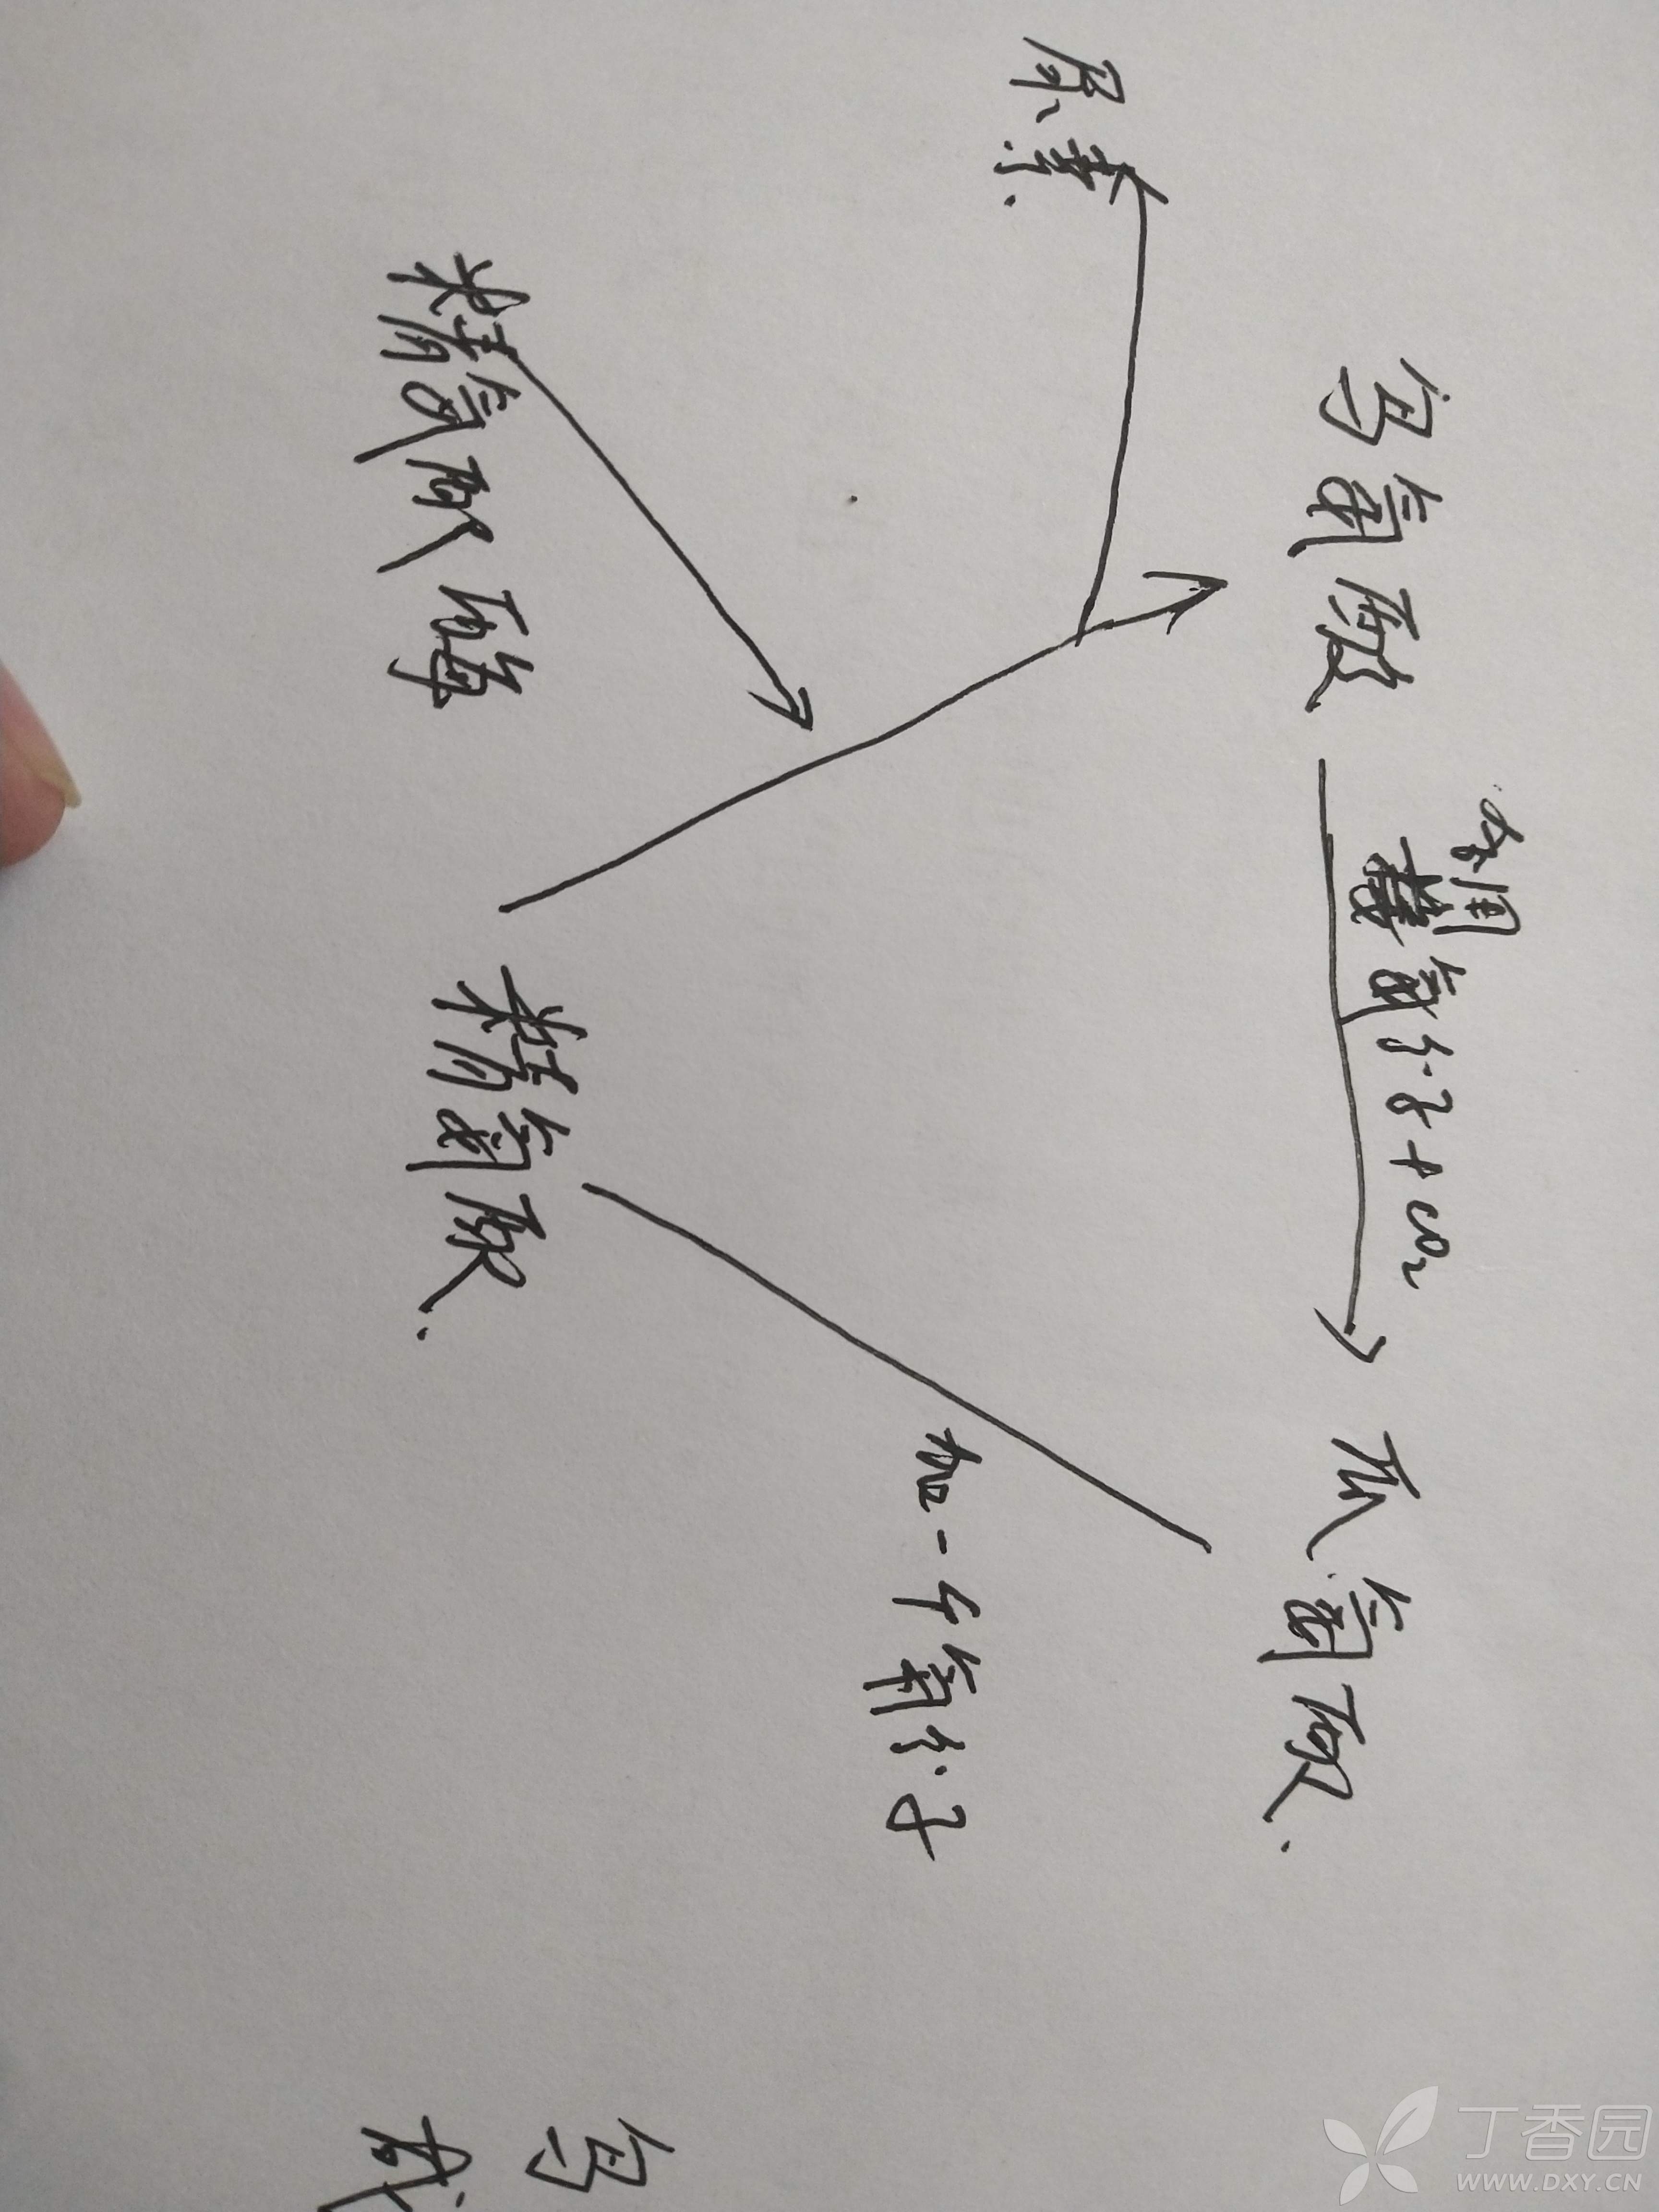 氨分子+CO₂
鸟氨酸
瓜氨酸.
尿素.
加一个氨分子
精氨酸酶
精氨酸.
鸟
丁香园
WWW.DXY.CN